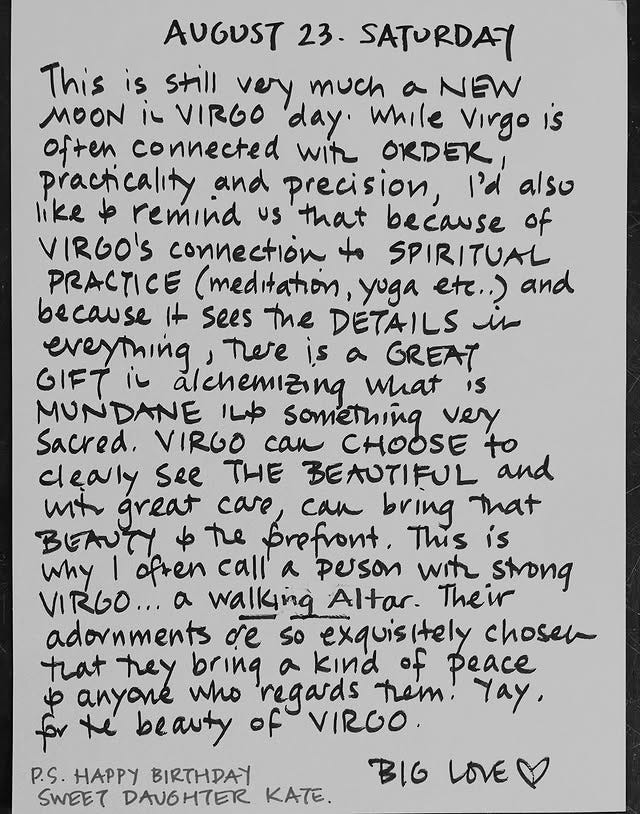 AUGUST 23. SATURDAY
This is still very much a NEW
MOON in VIRGO day. While Virgo is
often connected with ORDER,
practicality and precision, I'd also
like to remind us that because of
VIRGO'S connection to SPIRITUAL
PRACTICE (meditation, yoga etc..) and
because it sees the DETAILS in
everything, there is a GREAT
GIFT in alchemizing what is
MUNDANE into something very
Sacred. VIRGO can CHOOSE to
clearly see THE BEAUTIFUL and
with great care, can bring that
BEAUTY to the forefront. This is
why I often call a person with strong
VIRGO... a walking Altar. Their
adornments are so exquisitely chosen
that they bring a kind of peace
to anyone who regards them. Yay.
for the beauty of VIRGO.
BIG LOVE ♡
P.S. HAPPY BIRTHDAY
SWEET DAUGHTER KATE.